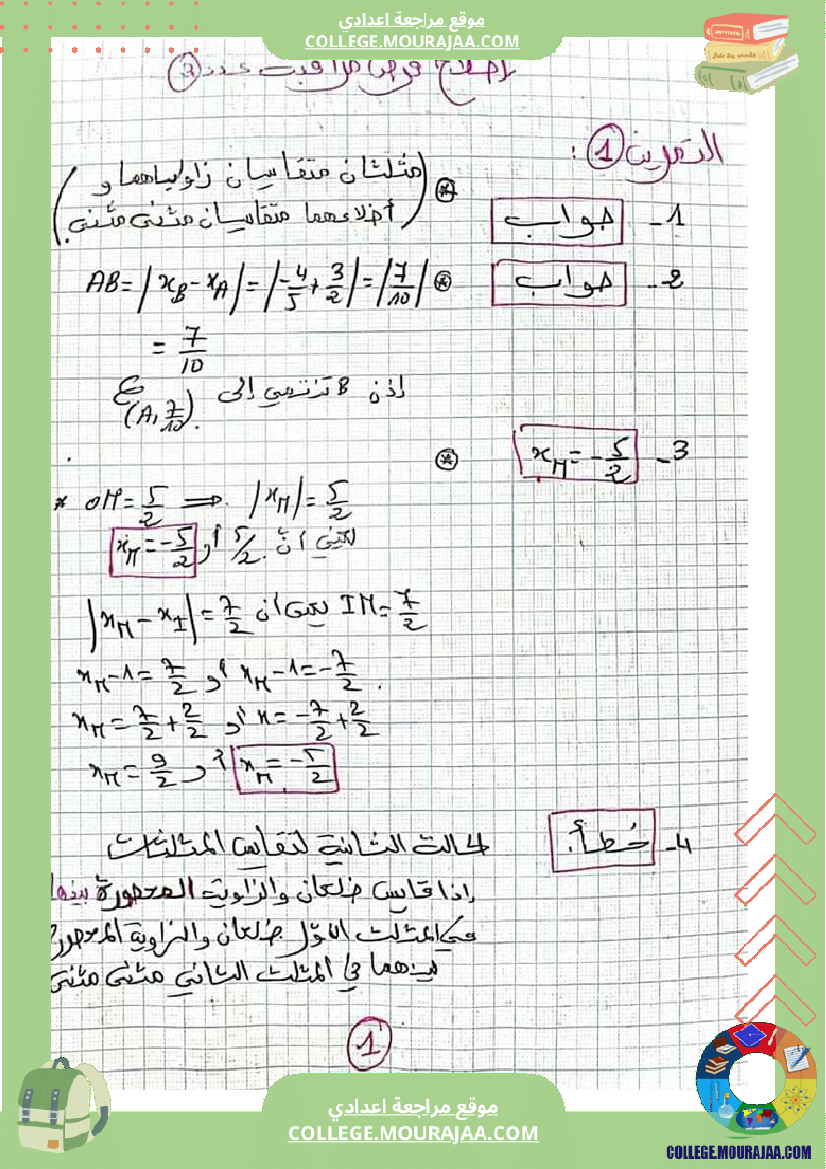 موقع مراجعة اعدادي
COLLEGE.MOURAJAA.COM
إصلاح فرض مراقبة عدد 3
التمرين 1 :
1- صواب
* (مثلثان متقايسان زواياهما و
أضلاعهما متقايسان مثنى مثنى)
2- صواب
* AB= |x_B - x_A| = |-4/5 + 3/2| = |7/10|
= 7/10
إذن B تنتمي إلى
(A, 7/10).
3- x_M = -5/2
*
* OM = 5/2 ⟹ |x_M| = 5/2
يعني أنّ 5/2 أو x_M = -5/2
IM = 7/2 يعني أن |x_M - x_I| = 7/2
x_M - 1 = 7/2 أو x_M - 1 = -7/2.
x_M = 7/2 + 2/2 أو x = -7/2 + 2/2
x_M = 9/2 أو x_M = -5/2
4- خطأ.
الحالة الثانية لتقايس المثلثات
إذا قايس ضلعان والزاوية المحصورة بينهما
في المثلث الأوّل ضلعان والزاوية المحصورة
بينهما في المثلث الثاني مثنى مثنى
1
موقع مراجعة اعدادي
COLLEGE.MOURAJAA.COM
COLLEGE.MOURAJAA.COM